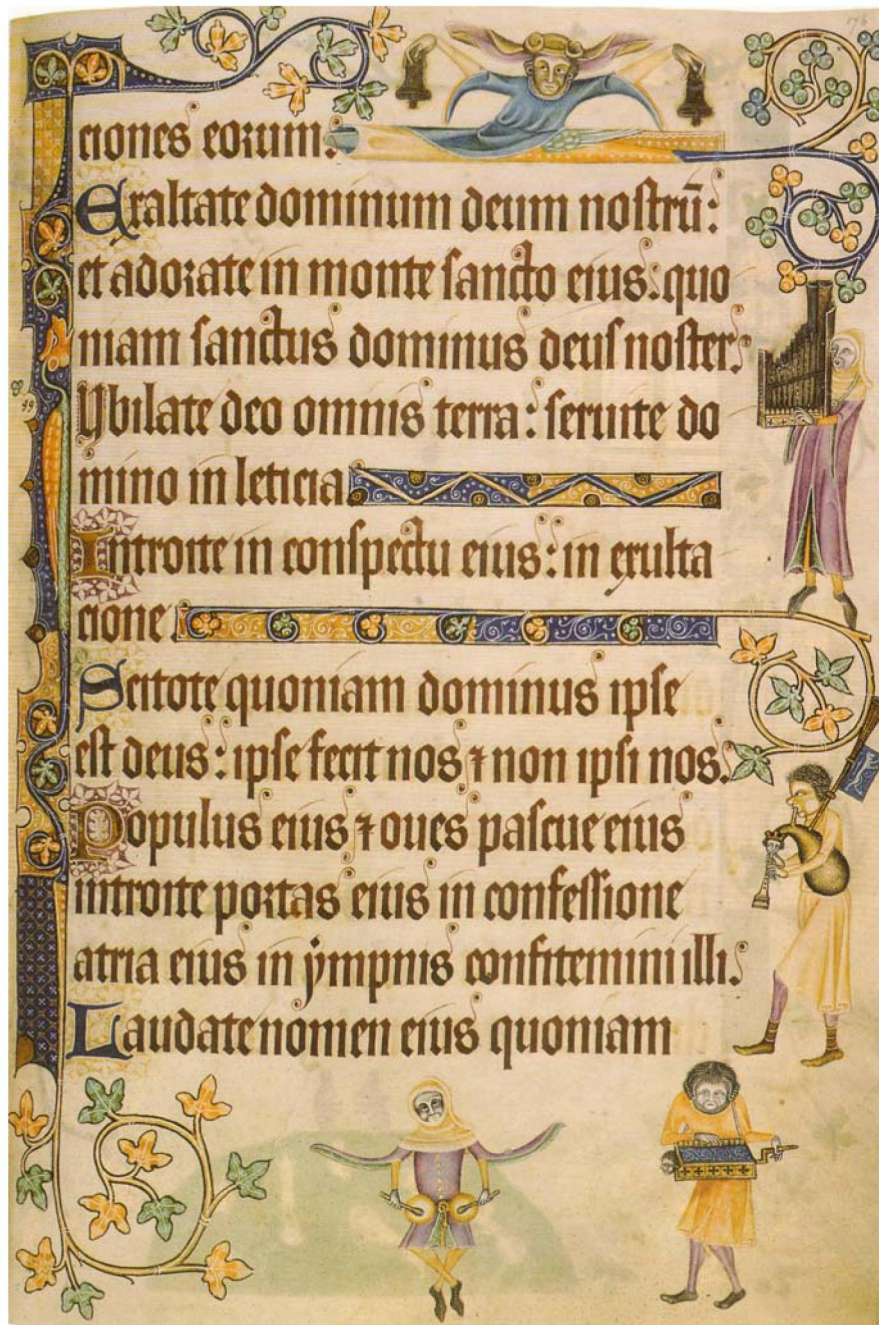 176
ciones eorum.
Exaltate dominum deum nostrū:
et adorate in monte sancto eius: quo
niam sanctus dominus deus noster.
Iybilate deo omnis terra: seruite do
mino in leticia.
Introite in conspectu eius: in exulta
cione
Scitote quoniam dominus ipse
est deus: ipse fecit nos ⁊ non ipsi nos.
Populus eius ⁊ oues pascue eius
introite portas eius in confessione
atria eius in ympnis confitemini illi.
Laudate nomen eius quoniam
99